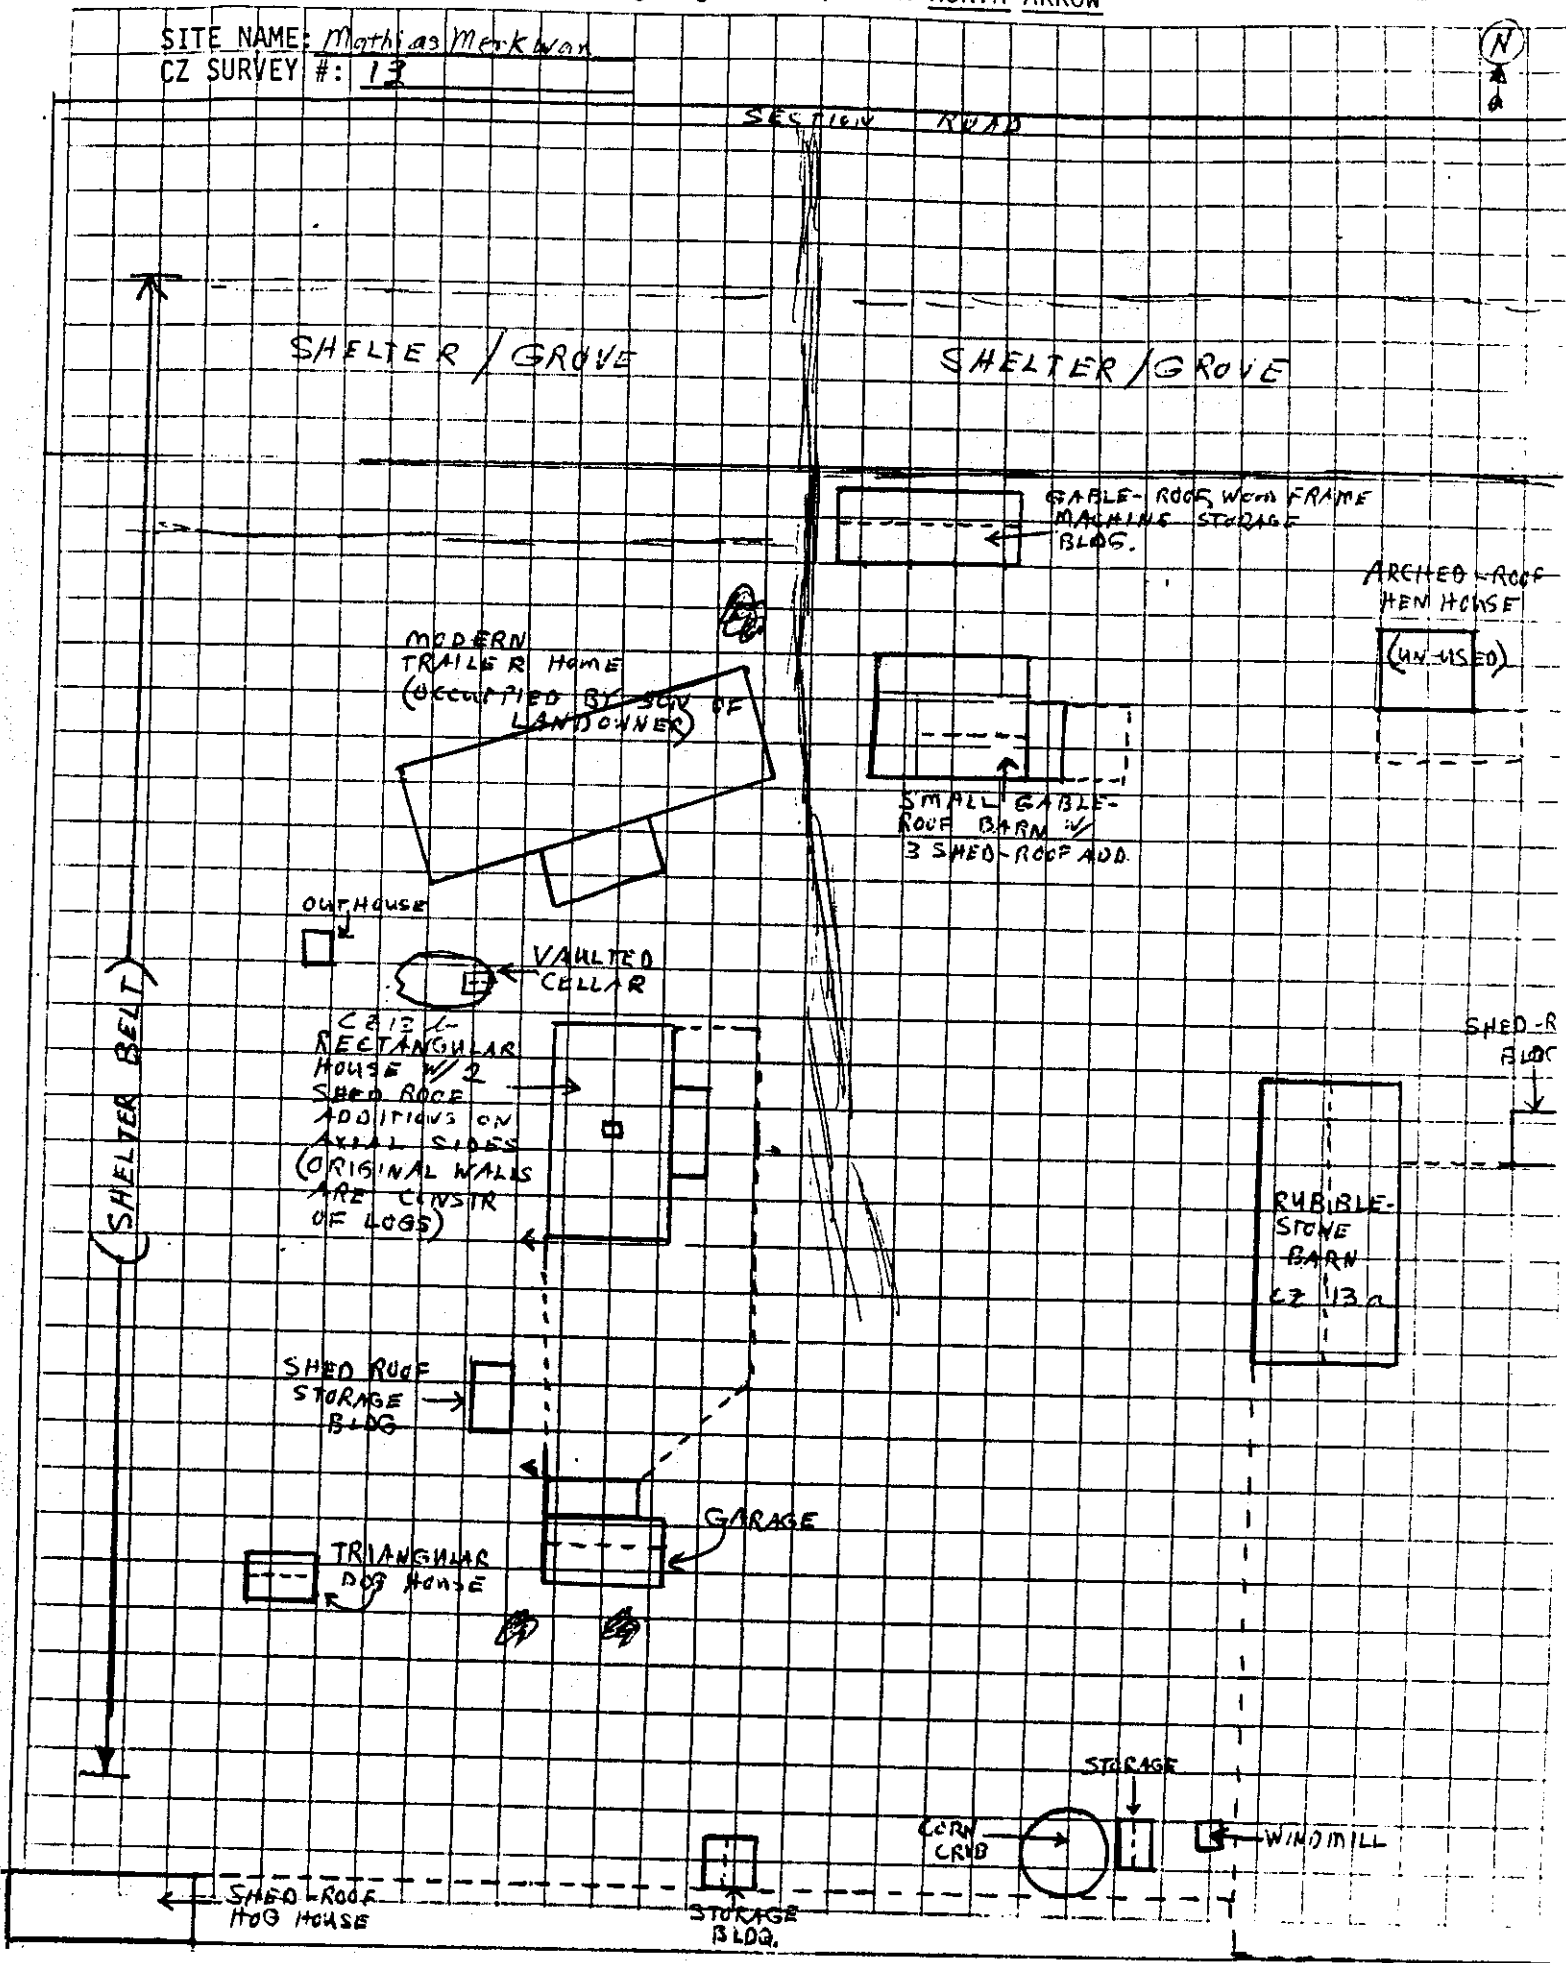 NORTH ARROW
SITE NAME: Mathias Merkwan
CZ SURVEY #: 13
N
SECTION ROAD
SHELTER / GROVE
SHELTER / GROVE
GABLE-ROOF, WOOD FRAME
MACHINE STORAGE
BLDG.
ARCHED-ROOF
HEN HOUSE
(UN-USED)
MODERN
TRAILER HOME
(OCCUPIED BY SON OF
LANDOWNER)
SMALL GABLE-
ROOF BARN W/
3 SHED-ROOF ADD.
OUTHOUSE
VAULTED
CELLAR
(SHELTER BELT)
RECTANGULAR
HOUSE W/ 2
SHED ROOF
ADDITIONS ON
AXIAL SIDES
(ORIGINAL WALLS
ARE CONSTR
OF LOGS)
SHED-R
BLDG
RUBIBLE-
STONE
BARN
CZ 13a
SHED ROOF
STORAGE
BLDG
GARAGE
TRIANGULAR
DOG HOUSE
STORAGE
CORN
CRIB
WINDMILL
SHED-ROOF
HOG HOUSE
STORAGE
BLDG.